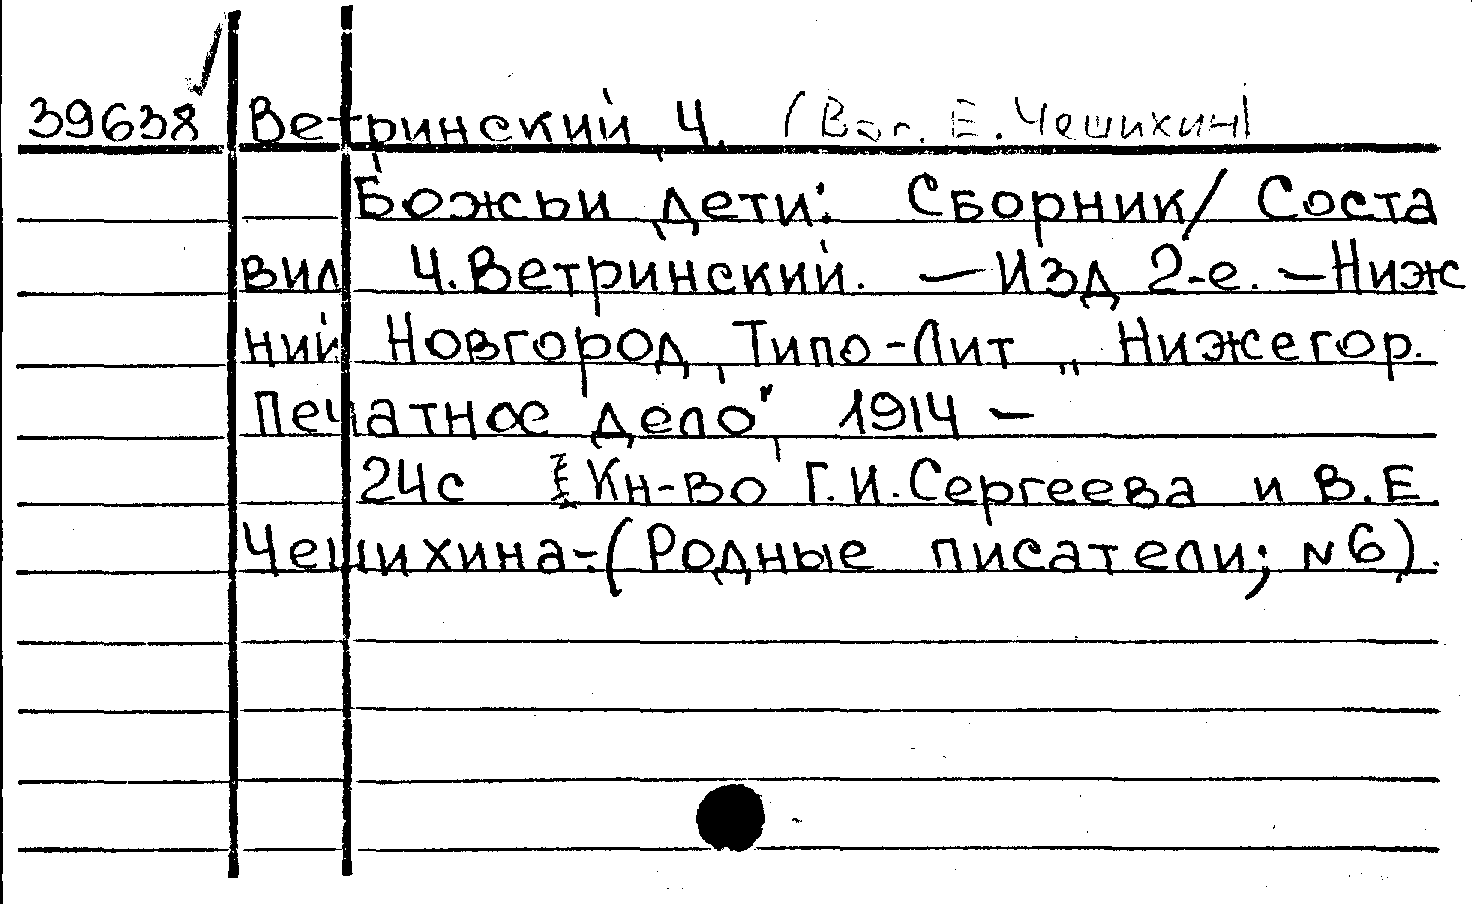 39638 Ветринский Ч. (Вас. Е. Чешихин)
Божьи дети: Сборник/ Соста
вил Ч. Ветринский. — Изд 2-е. — Ниж
ний Новгород, Типо-Лит „Нижегор.
Печатное дело", 1914 —
24с Кн-во Г.И. Сергеева и В.Е.
Чешихина-:(Родные писатели; N6).